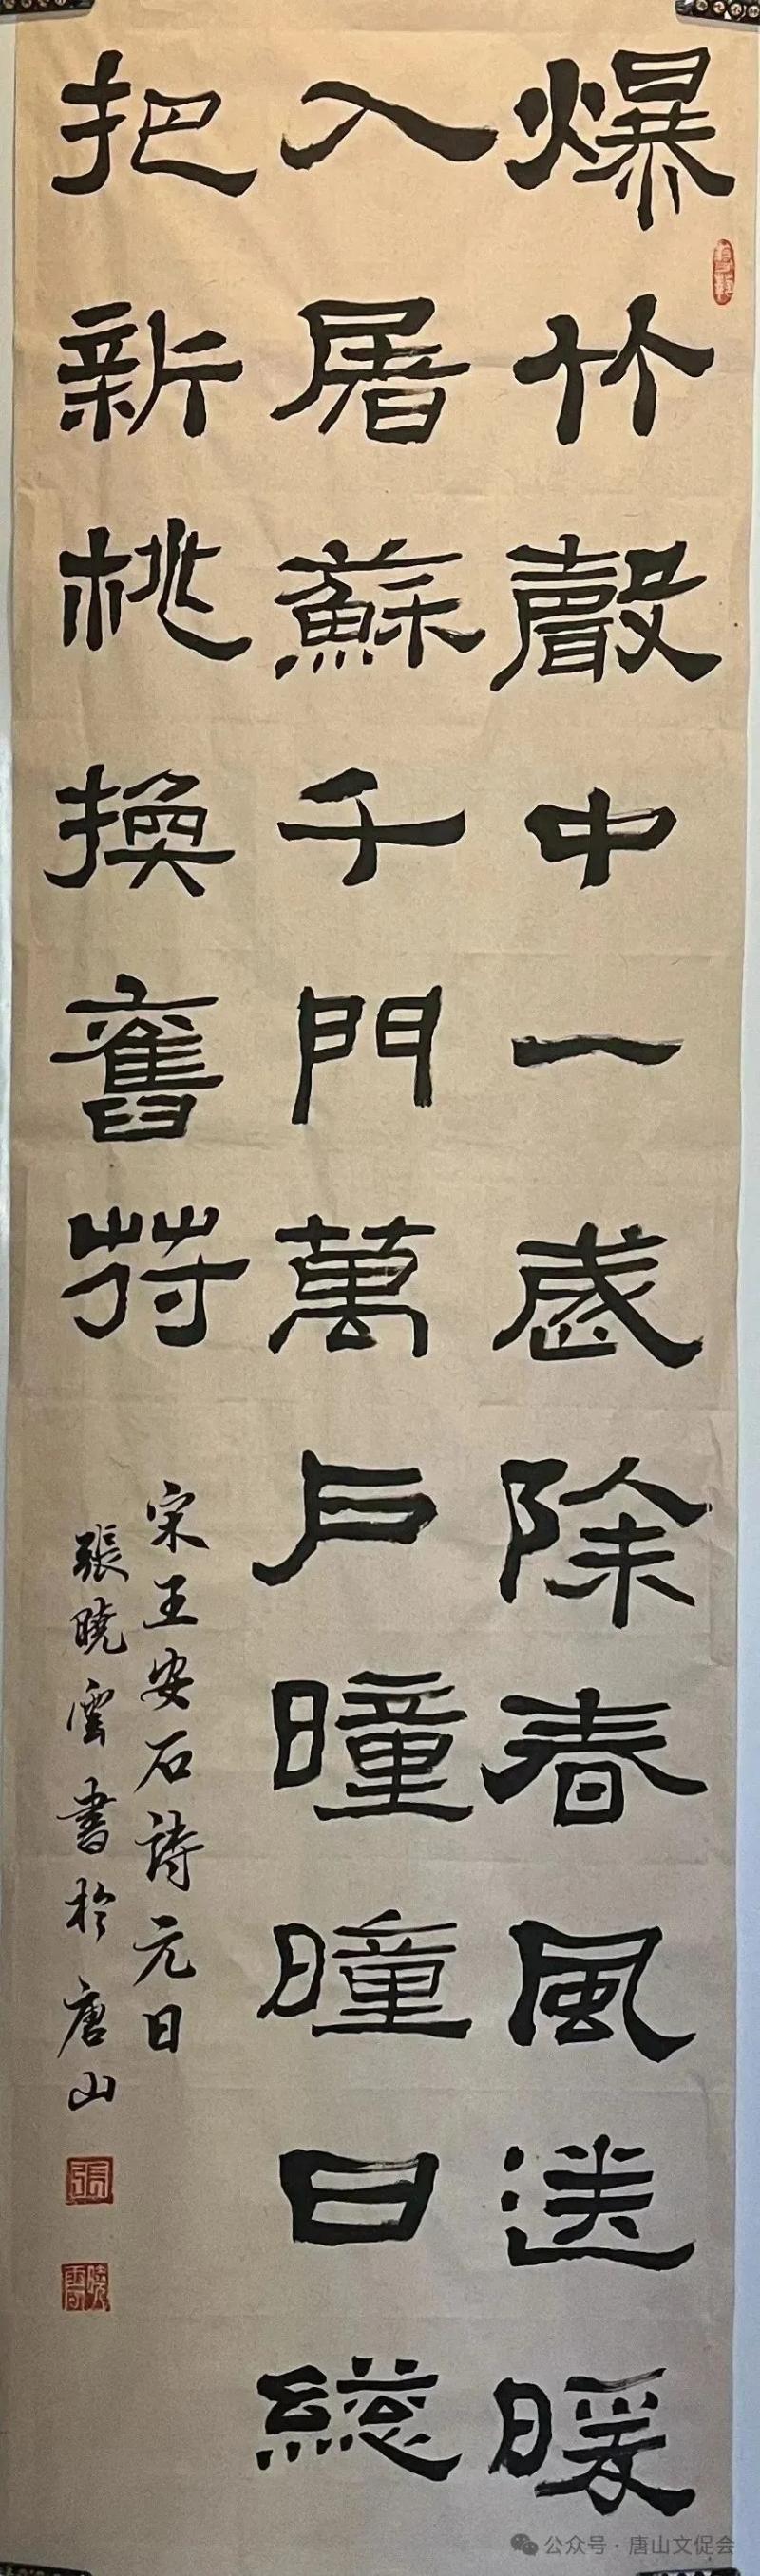 爆竹聲中一歲除春風送暖
入屠蘇千門萬戶曈曈日總
把新桃換舊符
宋王安石詩元日
張曉雲書於唐山
張
曉雲
公众号 · 唐山文促会